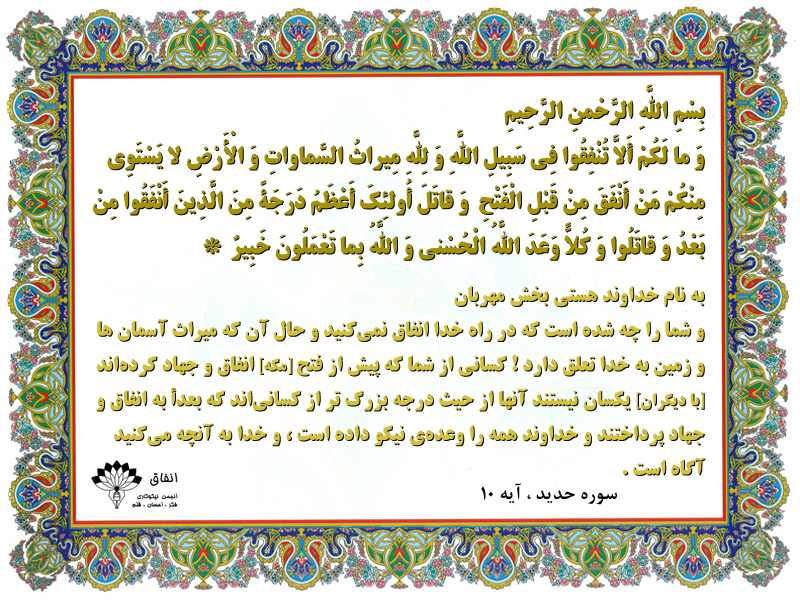 بِسْمِ اللَّهِ الرَّحْمنِ الرَّحِیمِ
وَ ما لَكُمْ أَلاَّ تُنْفِقُوا فِی سَبِیلِ اللَّهِ وَ لِلَّهِ مِیراثُ السَّماواتِ وَ الْأَرْضِ لا یَسْتَوِی
مِنْكُمْ مَنْ أَنْفَقَ مِنْ قَبْلِ الْفَتْحِ وَ قاتَلَ أُولئِکَ أَعْظَمُ دَرَجَةً مِنَ الَّذِینَ أَنْفَقُوا مِنْ
بَعْدُ وَ قاتَلُوا وَ كُلاًّ وَعَدَ اللَّهُ الْحُسْنى وَ اللَّهُ بِما تَعْمَلُونَ خَبِیرٌ *
به نام خداوند هستی بخش مهربان
و شما را چه شده است که در راه خدا انفاق نمی‌کنید و حال آن که میراث آسمان ها
و زمین به خدا تعلق دارد ! کسانی از شما که پیش از فتح [مکه] انفاق و جهاد کرده‌اند
[با دیگران] یکسان نیستند آنها از حیث درجه بزرگ تر از کسانی‌اند که بعداً به انفاق و
جهاد پرداختند و خداوند همه را وعده‌ی نیکو داده است ، و خدا به آنچه می‌کنید
آگاه است .
سوره حدید ، آیه ۱۰
انفاق
انجمن نیکوکاری
فکر ، احسان ، قلم